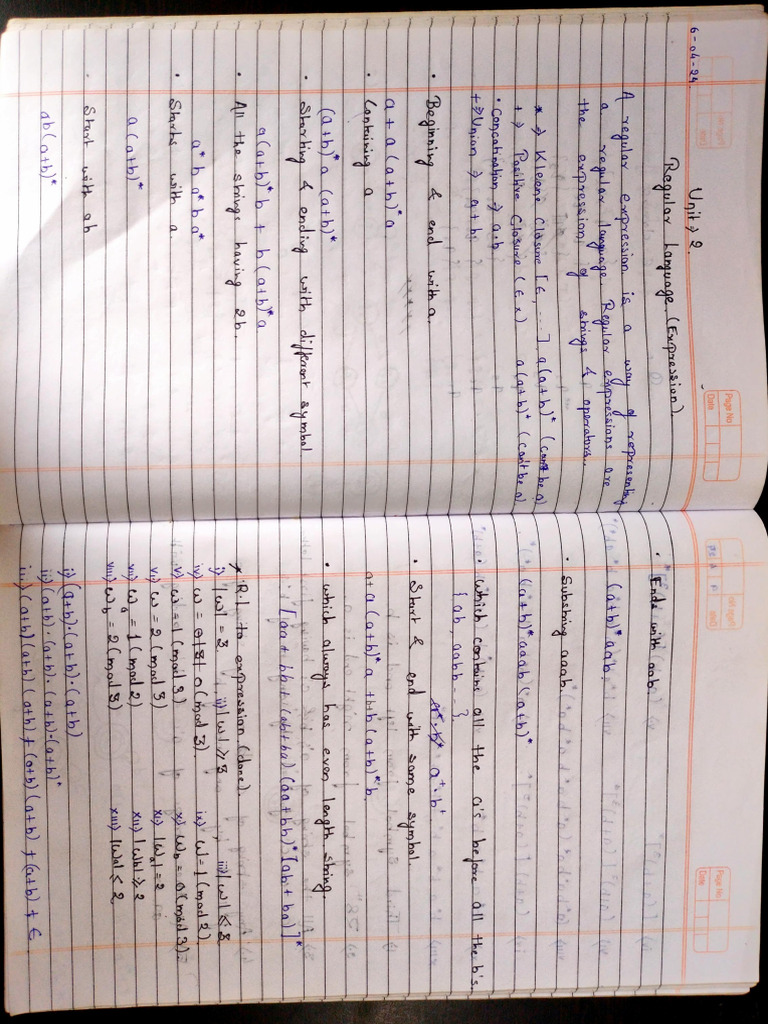 6-04-24.
Page No
Date
Unit → 2.
Regular Language. (Expression).
A regular expression is a way of representing
a regular language. Regular expressions are
the expression of strings & operators.
* ⇒ Kleene Closure [ε, ....] a(a+b)* (can't be a)
+ ⇒ Positive Closure (ε x) a(a+b)+ (can't be a)
• Concatination ⇒ a.b
+ ⇒ Union ⇒ a+b
• Beginning & end with a.
a + a (a+b)* a
• Containing a
(a+b)* a (a+b)*
• Starting & ending with different symbol
a(a+b)* b + b(a+b)* a
• All the strings having 2b.
a* b a* b a*
• Starts with a.
a(a+b)*
• Start with ab
ab(a+b)*
Page No
Date
• Ends with aab.
(a+b)* aab.
• Substring aaab.
(a+b)* aaab (a+b)*
• which contains all the a's before all the b's.
{ab, aabb ... }
a+.b+
• Start & end with same symbol.
a+a(a+b)*a +b+b(a+b)*b.
• which always has even length string.
[aa + bb + (ab+ba) (aa+bb)* (ab+ba)]*
* R.L to expression (done).
i) |w| = 3 ii) |w| ≥ 3 iii) |w| ≤ 3
iv) w = 0 (mod 3). ix) w = 1 (mod 2).
v) w = 1 (mod 3) x) wb = 0 (mod 3).
vi) w = 2 (mod 3) xi) |wa| = 2
vii) wa = 1 (mod 2) xii) |wb| ≥ 2
viii) wb = 2 (mod 3) xiii) |wa| ≤ 2
i) (a+b).(a+b).(a+b)
ii) (a+b).(a+b).(a+b).(a+b)*
iii) (a+b)(a+b)(a+b) + (a+b)(a+b) + (a+b) + ε